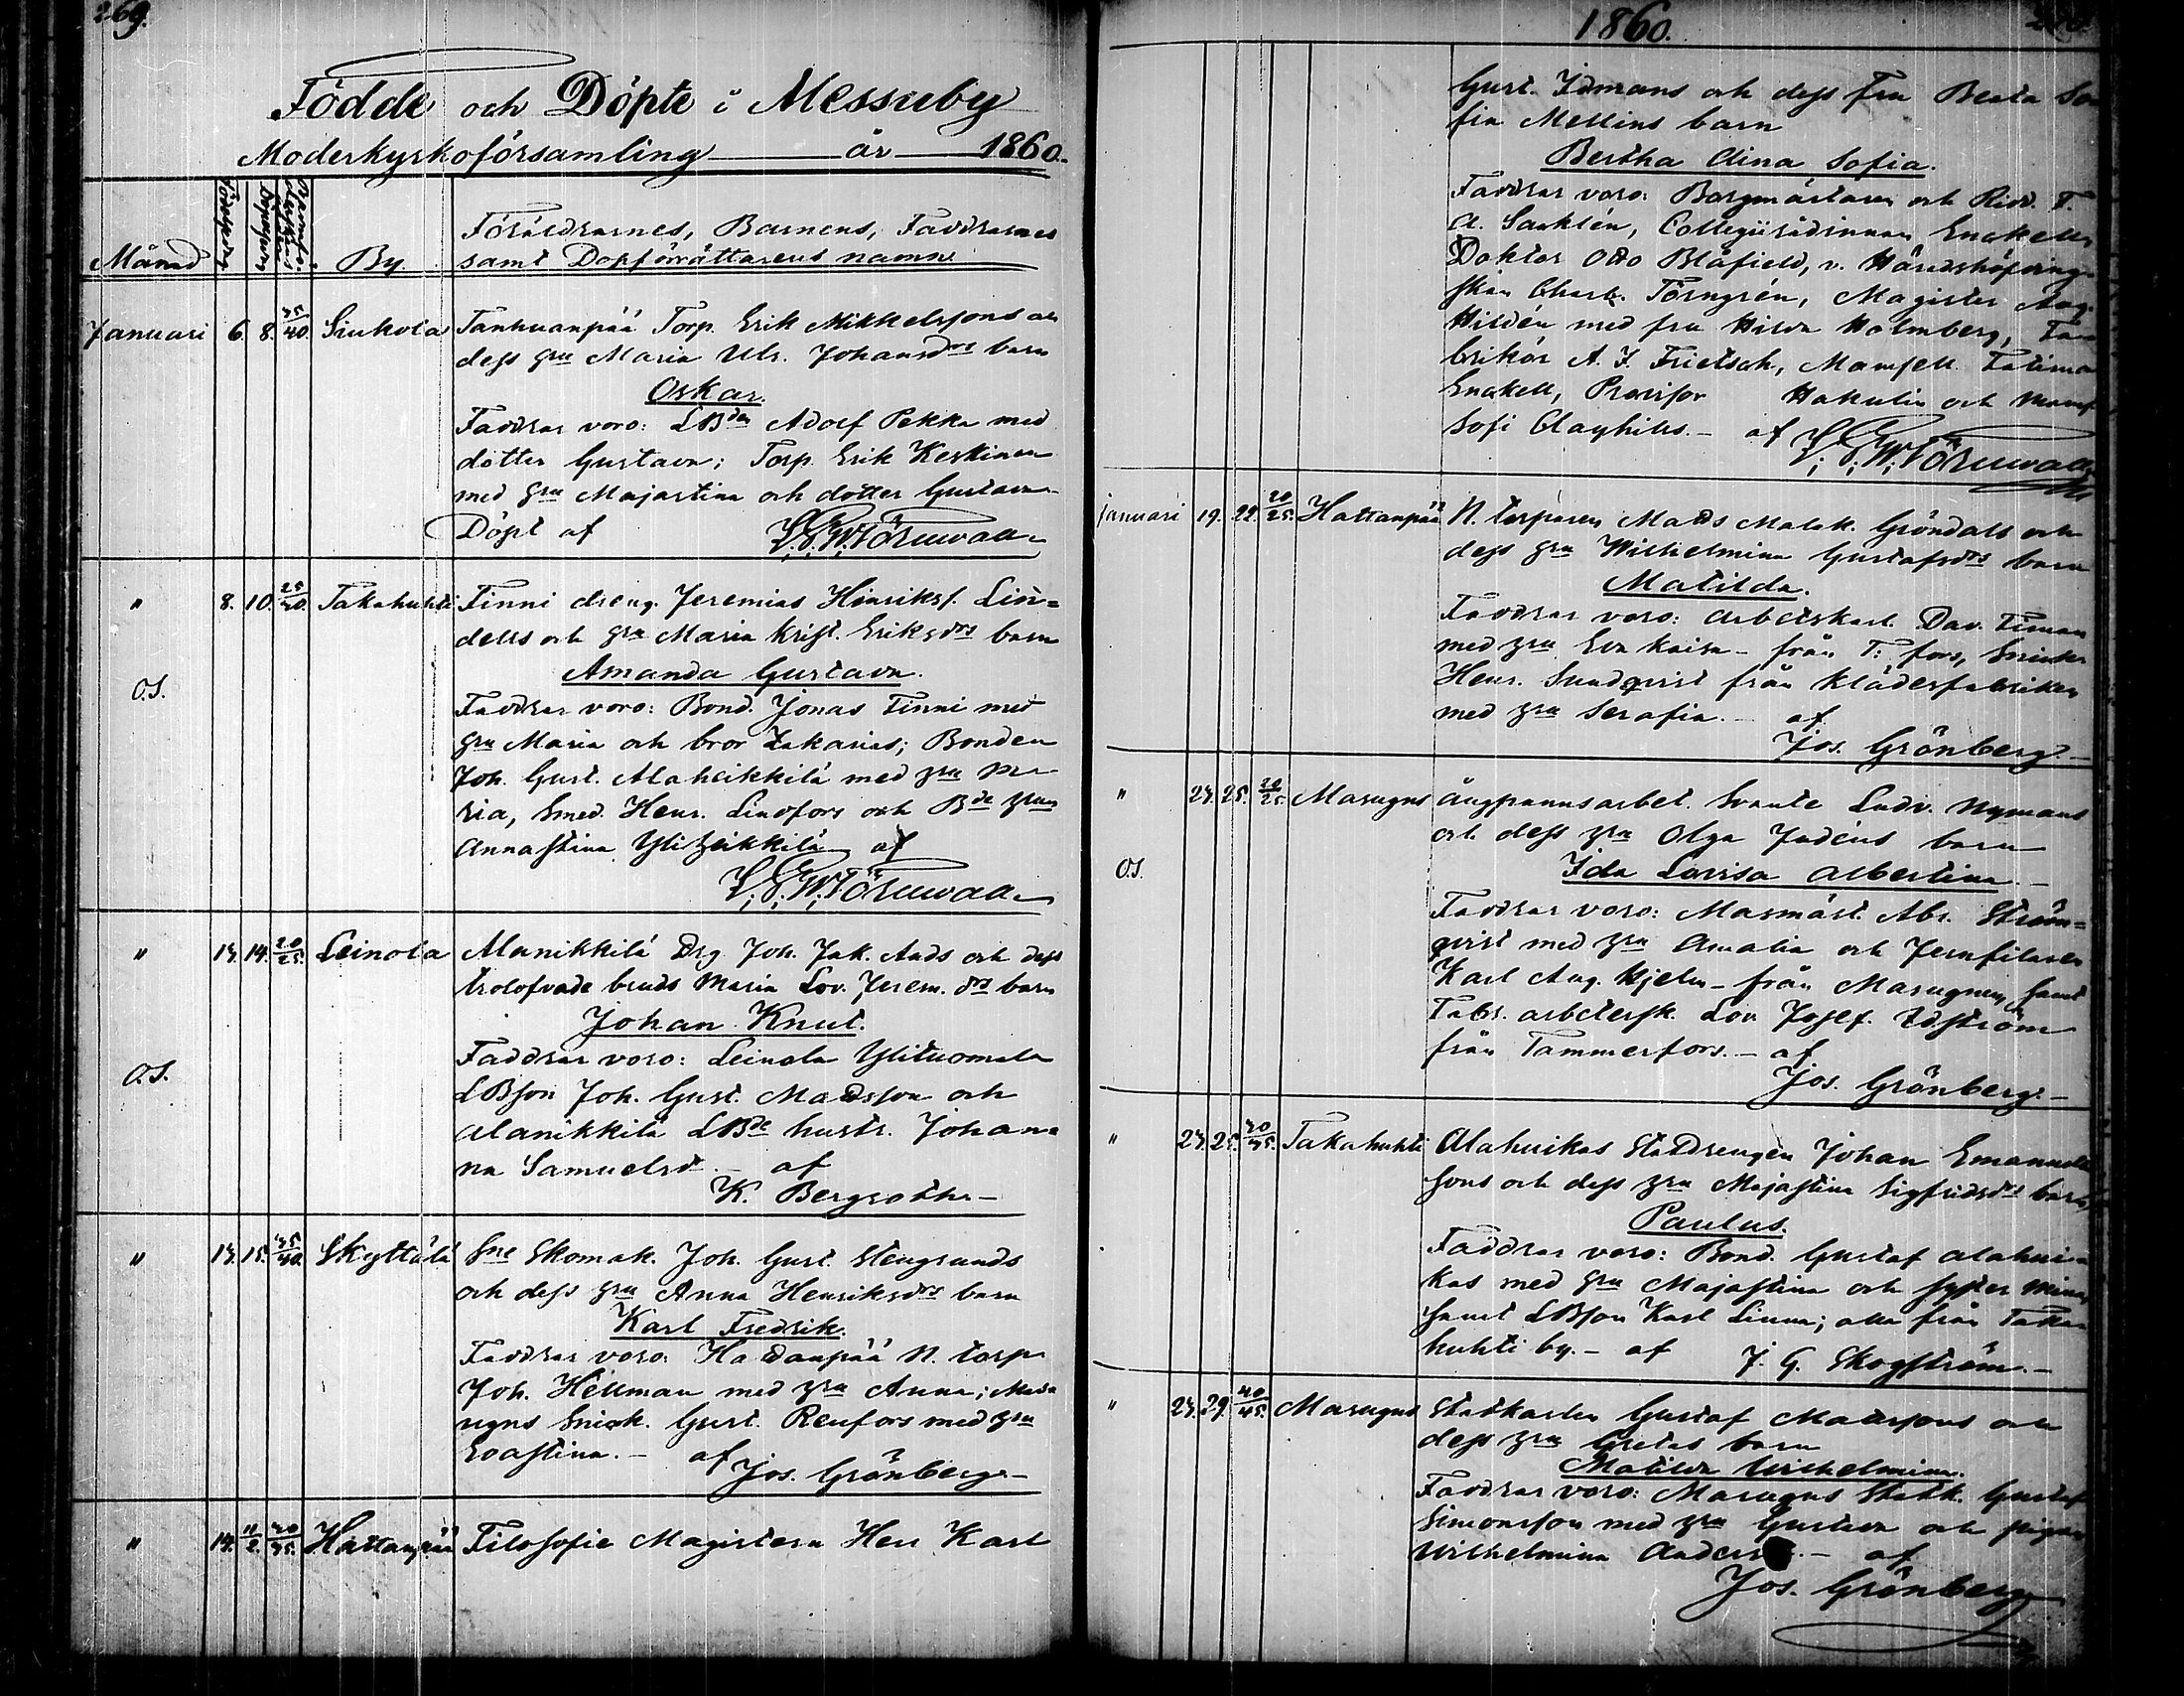 269.
Födde och Döpte i Messuby
Moderkyrkoförsamling år 1860.
Månad Födelsedag Döpelsedag By
Föräldrarnes, Barnens, Faddrarnes
samt Dopförrättarens namn
Januari 6. 8. 35/40. Siukola Tanhuanpää Torp. Erik Mikkelssons och
dess hu Maria Ulr. Johansdrs barn
Oskar.
Faddrar voro: LBden Adolf Pekka med
dotter Gustava; Torp. Erik Keskinen
med hu Majastina och dotter Gustava
Döpt af
" 8. 10. 25/30. Takahuhti Finni dreng. Jeremias Hinriks. Lin=
dells och hu Maria Krist. Eriksdrs barn
Amanda Gustava.
O.S.
Faddrar voro: Bond. Jonas Finni med
hu Maria och bror Zakarias; Bonden
Joh. Gust. Alaheikkilä med hu Ma-
ria, Smed. Henr. Lindfors och Bde hrun
Annastina Yliheikkilä af
" 13. 14. 20/25. Leinola Alanikkilä Drg. Joh. Jak. Ands och dess
trolofvade bruds Maria Lov. Jerem. drs barn
Johan Knut.
Faddrar voro: Leinola Ylituomala
O.S.
LBson Joh. Gust. Mattsson och
Alanikkilä LBde hustr. Johan=
na Samuelsd. – af
K. Bergroth –
" 13. 15. 35/40. Skyttälä Sne Skomak. Joh. Gust. Stengrunds
och dess hu Anna Henriksdrs barn
Karl Fredrik.
Faddrar voro: Hattanpää N. torp.
Joh. Hellman med hu Anna; Mas=
ugns Snick. Gust. Renfors med hu
Evastina. – af Jos. Grönberg –
" 14. 11/2. 30/35. Hattanpää Filosofie Magistern Herr Karl
1860.
Gust. Idmans och dess Fru Beata So
fia Mellins barn
Bertha Alina Sofia.
Faddrar voro: Borgmästaren och Ridd. F.
A. Saxklén, Collegiirådinnan Enckell,
Doktor Otto Blåfield, v. Häradshöfding
skan Charl. Törngrén, Magister Aug.
Hildén med fru Hilda Holmberg, Fa
brikör A. F. Frietsch, Mamsell Fatima
Enckell, Provisor Hakulin och Mams
Sofi Clayhills. – af
Januari 19. 22. 20/25. Hattanpää N. torparen Matts Malak. Gröndals och
dess hu Wilhelmina Gustafsdrs barn
Matilda.
Faddrar voro: arbetskarl. Dav. Timan
med hru Eva Kaisa – från T:fors, Snickar
Henr. Sundqvist från Klädesfabriken
med hru Serafia. – af
Jos. Grönberg. –
" 23. 25. 20/25. Masugns ångpannsarbet. Svante Ludv. Nymans
och dess hru Olga Judéns barn
O.S.
Ida Lovisa Albertina. –
Faddrar voro: Masmäst. Abr. Ström=
qvist med hru Amalia och Jernfilaren
Karl Aug. Hjelm – från Masugnen samt
Fabr. arbetersk. Lov. Josef. Edström
från Tammerfors. – af
Jos. Grönberg. –
" 23. 25. 30/35. Takahuhti Alahuikas Statdrengen Johan Emanuels
sons och dess hru Majastina Sigfridsdrs barn,
Paulus.
Faddrar voro: Bond. Gustaf Alahui=
kas med hru Majastina och syster Mina,
samt LBson Karl Linna; alla från Taka
huhti by. – af J. G. Skogström. –
" 23. 29. 40/45. Masugns Statkarlen Gustaf Matssons och
dess hru Gretas barn
Matilda Wilhelmina.
Faddrar voro: Masugns Statk. Gustaf
Simonsson med hru Gustava och pigan
Wilhelmina – af
Jos. Grönberg